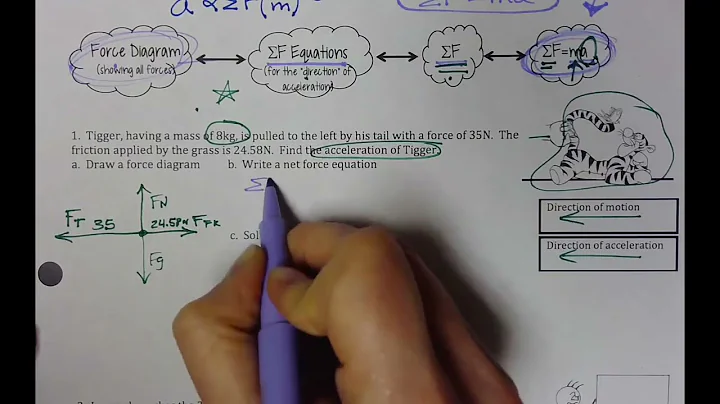 a ∝ ΣF (m)
ΣF = ma
Force Diagram
(showing all forces)
ΣF Equations
(for the "direction" of
acceleration)
ΣF
ΣF=ma
1. Tigger, having a mass of 8kg, is pulled to the left by his tail with a force of 35N. The
friction applied by the grass is 24.58N. Find the acceleration of Tigger.
a. Draw a force diagram b. Write a net force equation
Direction of motion
Direction of acceleration
FN
FT 35
24.58N FFK
Fg
Σ
c. Sol